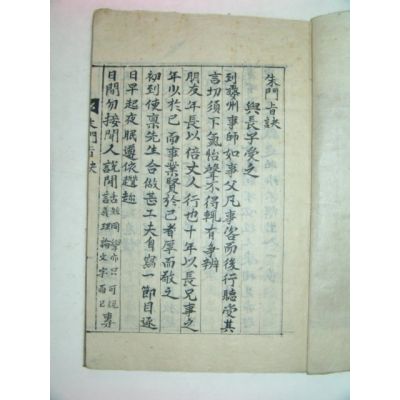 朱門旨訣
與長子受之
到婺州事師如事父凡事咨而後行聽受其
言切須下氣怡聲不得輒有爭辨
朋友年長以倍丈人行也十年以長兄事之
年少於己而事業賢於己者厚而敬之
初到便稟先生合做甚工夫自寫一節目逐
日早起夜眠遵依趲趁
日間勿接閒人說閒話如同學亦只可說義理論文字而已專
朱門旨訣